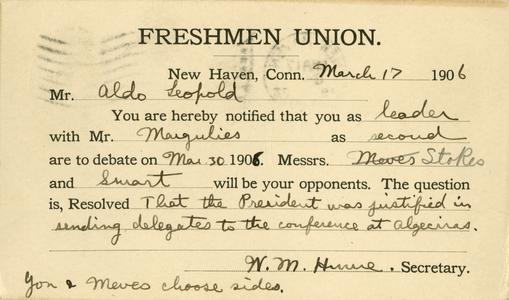 FRESHMEN UNION.
New Haven, Conn. March 17 1906
Mr. Aldo Leopold
You are hereby notified that you as leader
with Mr. Margulies as second
are to debate on Mar 30 1906. Messrs. Meves Stokes
and Smart will be your opponents. The question
is, Resolved That the President was justified in
sending delegates to the conference at Algeciras.
W. M. Hume. Secretary.
You & Meves choose sides.